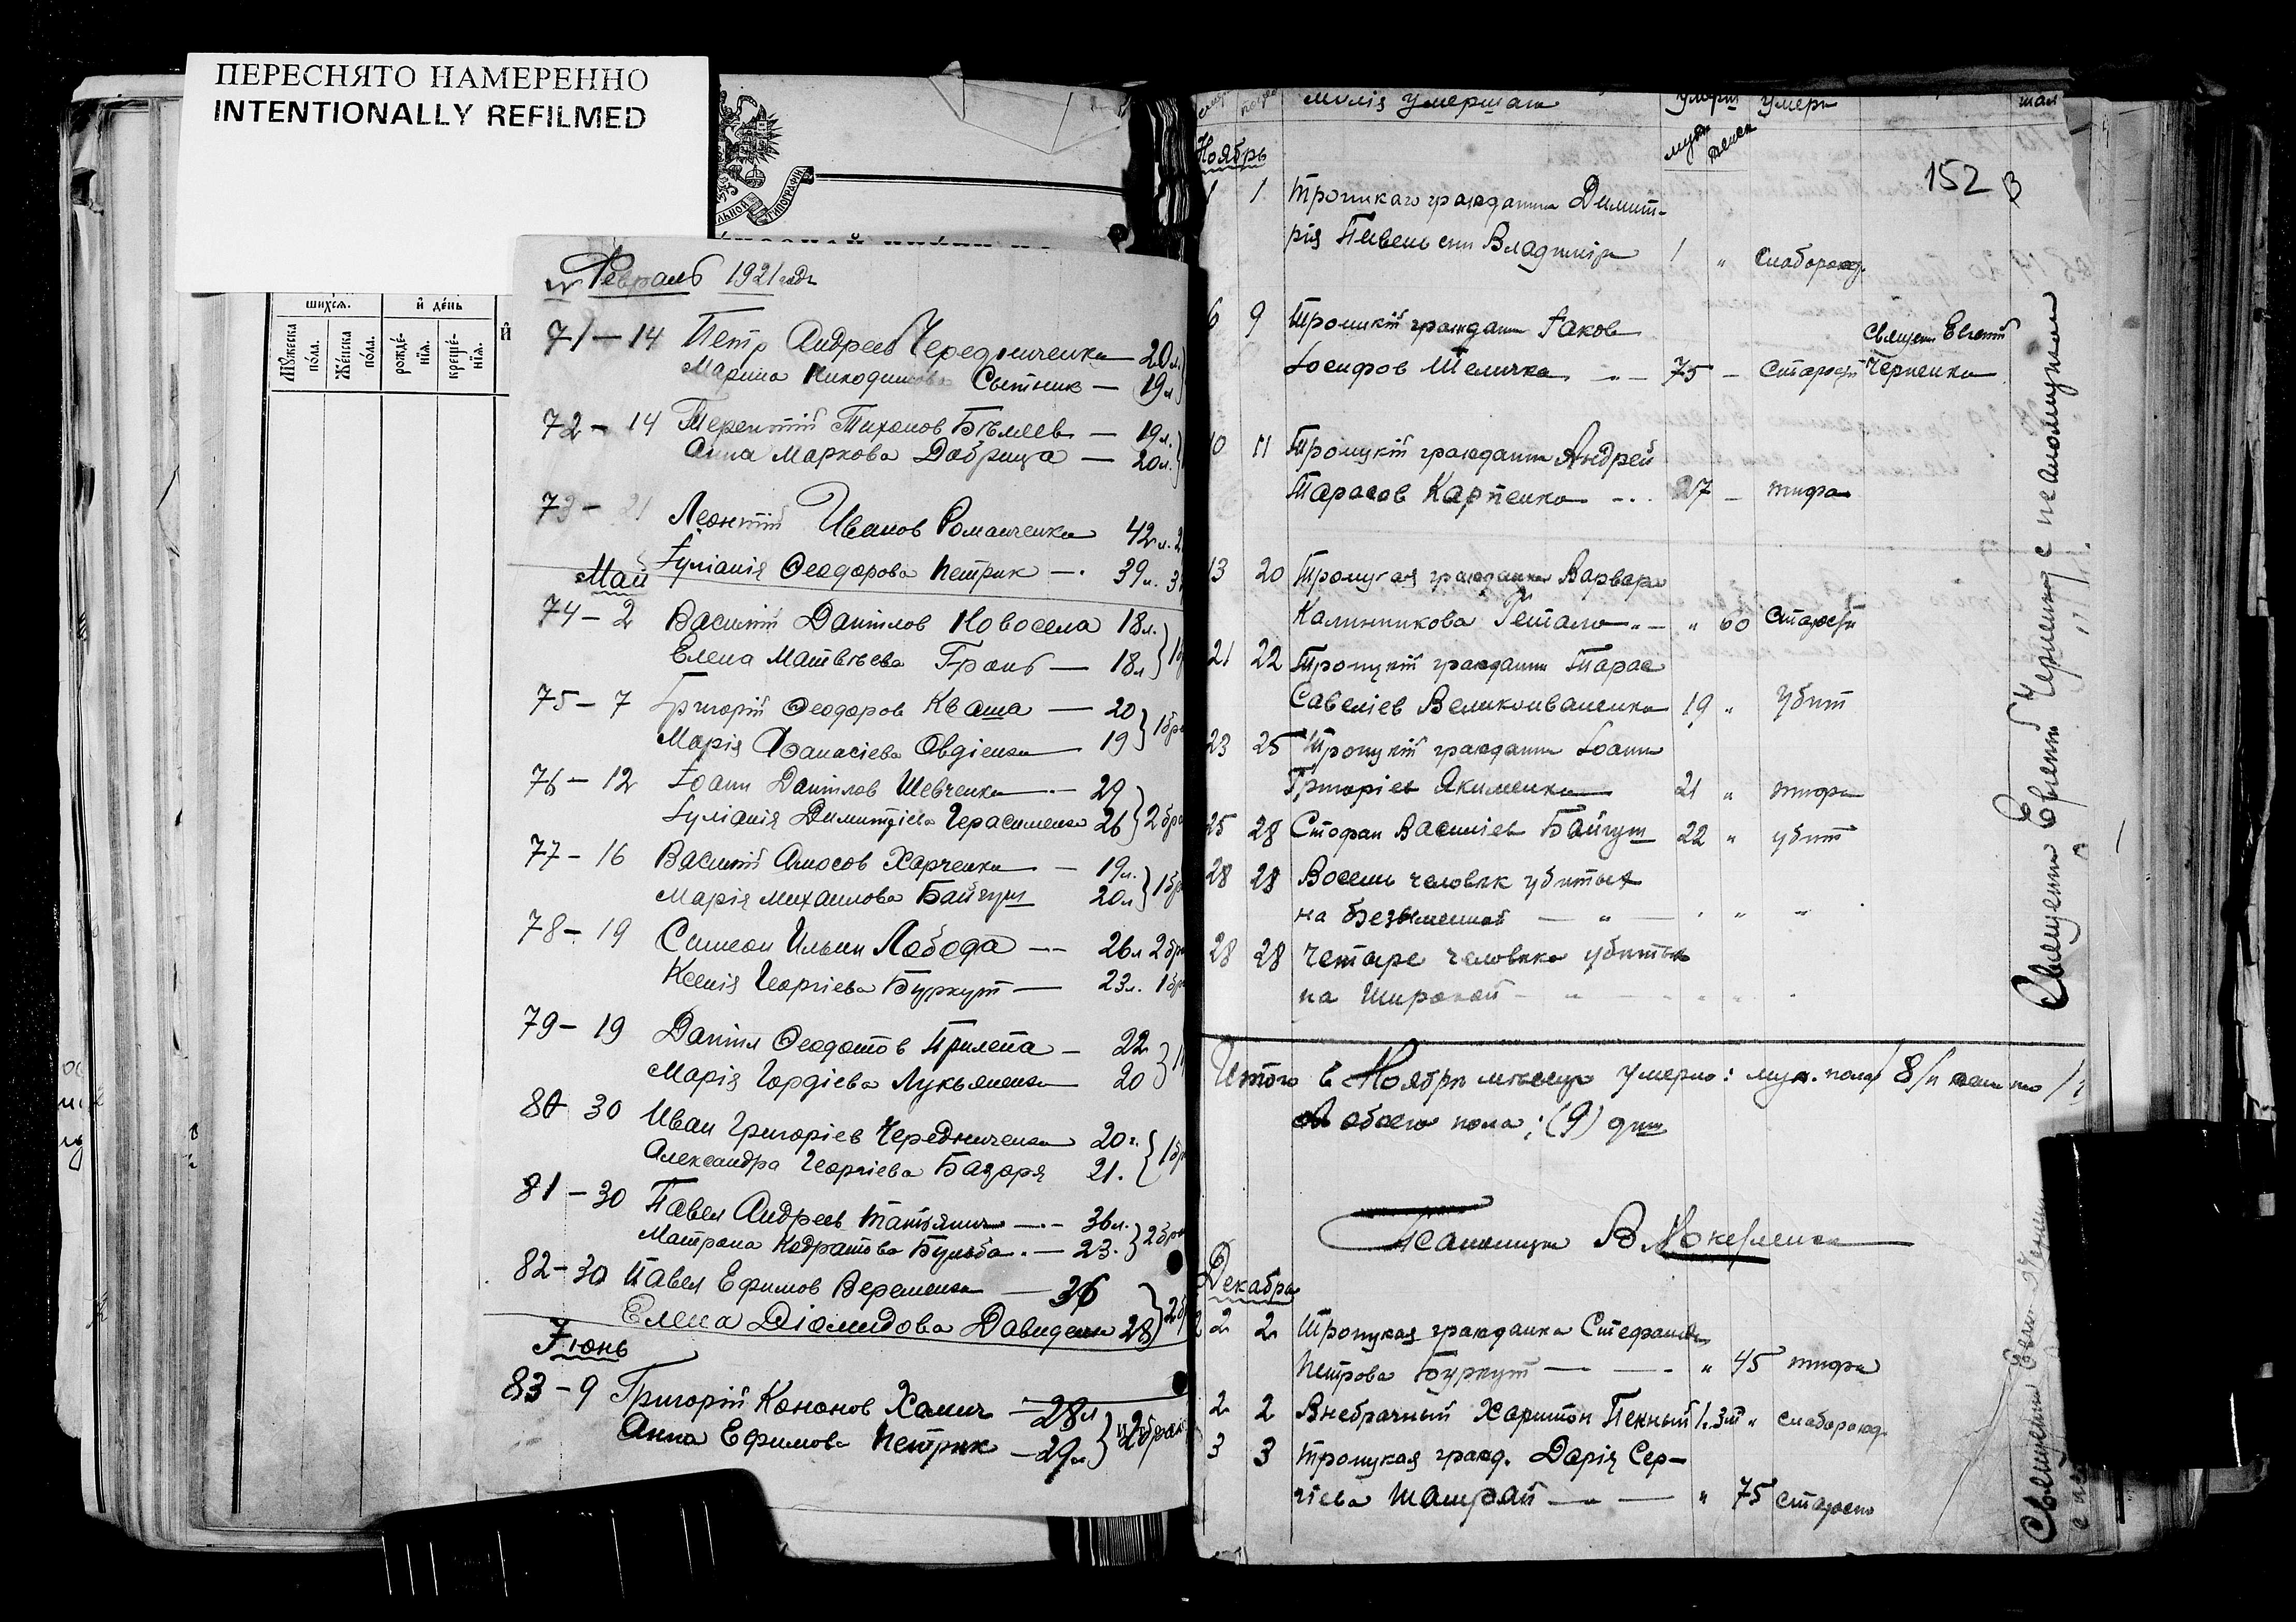 ПЕРЕСНЯТО НАМЕРЕННО
INTENTIONALLY REFILMED
шихся.
и день
Мужеска пола.
Женска пола.
рожде-нія.
креще-нія.
Февраль 1921 года
71 — 14 Петр Андреев Чередниченко 20 л.
Марина Никодимова Сытник — 19 л
72 — 14 Терентій Тихонов Бѣляев — 19 л.
Анна Маркова Добрица — 20 л.
73 — 21 Леонтій Иванов Романченко 42 л.
Іуліанія Ѳеодорова Петрик — 39 л.
Май
74 — 2 Василій Даніилов Новосела 18 л.
Елена Матвѣева Гронь — 18 л
75 — 7 Григорій Ѳеодоров Кваша — 20
Марія Аѳанасіева Овдіенко 19 } 1 бра
76 — 12 Іоанн Даніилов Шевченко — 29
Іуліанія Димитріева Герасименко 26 } 2 бра
77 — 16 Василій Амосов Харченко — 19 л.
Марія Михаилова Байгуш 20 л } 1 бр
78 — 19 Симеон Ильин Лобода — 26 л 2 бр
Ксенія Георгіева Буркут — 23 л. 1 бр
79 — 19 Даніил Ѳеодотов Прилепа — 22
Марія Гордіева Лукьяненко 20
80 30 Иван Григоріев Чередниченко 20 г.
Александра Георгіева Базаря 21. } 1 бр
81 — 30 Павел Андреев Татьянич — 36 л.
Матрона Кодратова Бульба — 23. } 2 бра
82 — 30 Павел Ефимов Веременко — 36
Елена Діомидова Давиденко 28 } 2 б
Іюнь
83 — 9 Григорій Кононов Хомич — 28 л
Анна Ефимова Петрик — 29 л } 2 брак
милія умерших
умерш
умерл
муж
женск
Ноябрь
152 в
1 1 Троицкаго гражданина Димит-
рія Пивень сын Владимір 1 " слаборожд.
6 9 Троицкій гражданин Іаков
Іосифов Теличко — 75 — Старости
Священ Евгеній
Черненко
10 11 Троицкій гражданин Андрей
Тарасов Карпенко — 27 — тифа
13 20 Троицкая гражданка Варвара
Калинникова Гетало " — " 60 Старости
21 22 Троицкій гражданин Тарас
Савеліев Великоиваненко 19 " Убит
23 25 Троицкій гражданин Іоанн
Григоріев Якименко 21 " тифа
25 28 Стефан Василіев Байгуш 22 " убит
28 28 Восемь человѣк убитых
на Безыменной — " — " "
28 28 Четыре человѣка убитых
на Широкой — " — " "
Священник Евгеній Черненко с псаломщиком
Итого в Ноябрѣ мѣсяцѣ умерло: муж. пола / 8 /
обоего пола: (9) душ
Псаломщик В.
Декабрь
2 2 Троицкая гражданка Стефанида
Петрова Буркут — — " 45 тифа
2 2 Внебрачный Харитон Пенный 1. 3 м " слаборожд.
3 3 Троицкая гражд. Дарія Сер-
гіева Шамрай — — " 75 старости
Священник